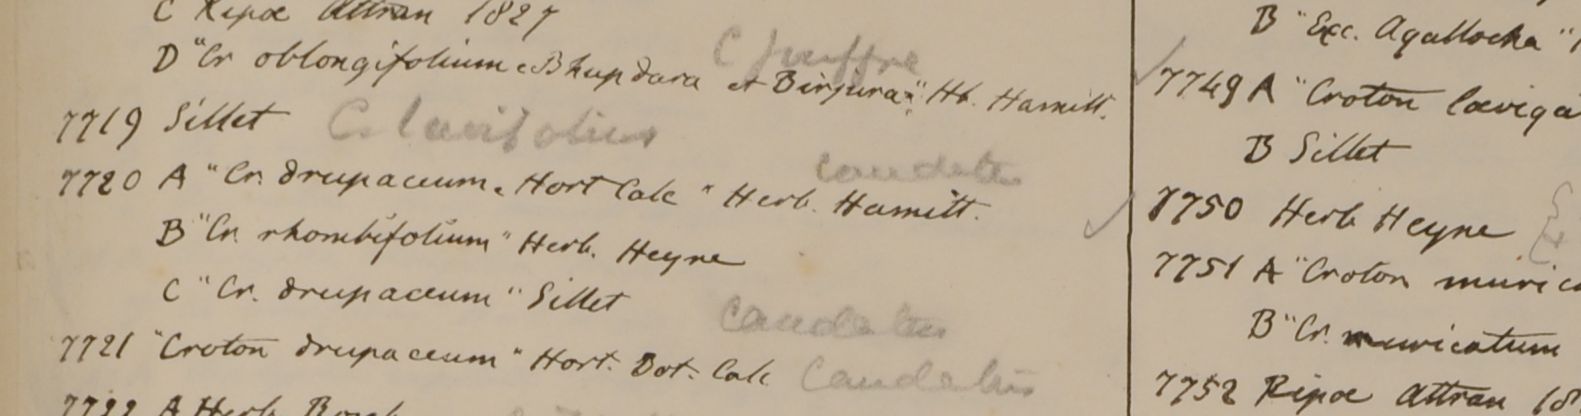 C Ripæ Attran 1827
D "Cr oblongifolium Bhupdara et Birjura" Hb. Hamilt.
7719 Sillet C. lævifolius
7720 A "Cr. drupaceum. Hort Calc" Herb. Hamilt. caudatu
B "Cr. rhombifolium" Herb. Heyne
C "Cr. drupaceum" Sillet caudatus
7721 "Croton drupaceum" Hort. Bot. Calc caudatus
7722 A Herb. Roxb
B "Exc. Agallocha"
7749 A "Croton læviga
B Sillet
7750 Herb Heyne
7751 A "Croton muric
B "Cr. muricatum
7752 Ripæ Attran 18